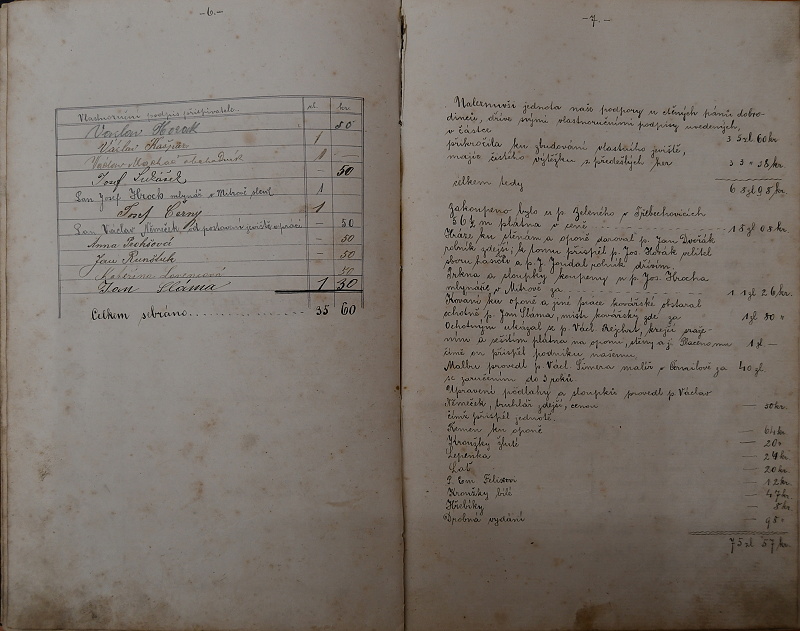 –6.–
Vlastnoruční podpis přispívatele. zl. kr.
Václav Horák – 50
Václav Kašpar 1
1 –
Josef Lukášek – 50
Pan Josef Hroch mlynář v Mitrově slevil 1
Josef Černý 1
Pan Václav Němeček za postavení jeviště a práci 50
Anna Pechšová – 50
Jan Runštuk – 50
Kateřina – 50
Jan Sláma 1 30
Celkem sebráno 35 60
–7.–
jednota naše podpory u ctěných pánů dobro-
dinců, dříve svými vlastnoručními podpisy uvedených,
v částce 35 zl 60 kr
přikročila ku zbudování vlastního jeviště,
majíc čistého výtěžku z předešlých her 33 " 38 kr.
celkem tedy 68 zl 98 kr.
Zakoupeno bylo u p. Zeleného v Třebechovicích
56 ½ m plátna v ceně 15 zl 08 kr.
Kráze ku stěnám a oponě daroval p. Jan Dvořák
rolník zdejší, k tomu přispěl p. Jos. Horák velitel
sboru hasičů a p. J. Joudal rolník dřívím.
Prkna a sloupky koupeny u p. Jos. Hrocha
mlynáře v Mitrově za 11 zl 26 kr.
Kování ku oponě a jiné práce kovářské obstaral
ochotně p. Jan Sláma, mistr kovářský zde za 1 zl 80 "
Ochotným ukázal se p. Václ. Rejchrt, krejčí
a sešitím plátna na oponu, stěny a j. Placeno mu 1 zl —
čímž on přispěl podniku našemu.
Malbu provedl p. Václ. Šimera malíř v Černilově za 40 zl.
se zaručením do 3 roků.
Upravení podlahy a sloupků provedl p. Václav
Němeček, truhlář zdejší, cenou — 50 kr.
čímž přispěl jednotě.
Řemen ku oponě — 64 kr
Kroužky žluté — 20 "
Lepenka — 24 kr
Lať — 20 kr.
P. Em. — 12 kr.
Kroužky bílé — 47 kr
Hřebíky — 8 kr
Drobná vydání — 98 "
75 zl 57 kr.